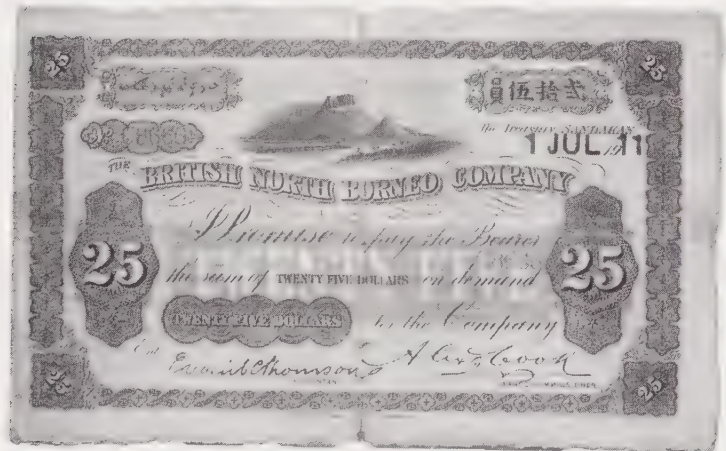 25 25
員伍拾弐
the Treasury SANDAKAN
1 JUL 1911
THE
BRITISH NORTH BORNEO COMPANY
I Promise to pay the Bearer
25 the sum of TWENTY FIVE DOLLARS on demand 25
TWENTY FIVE DOLLARS for the Company
Cook
25 25